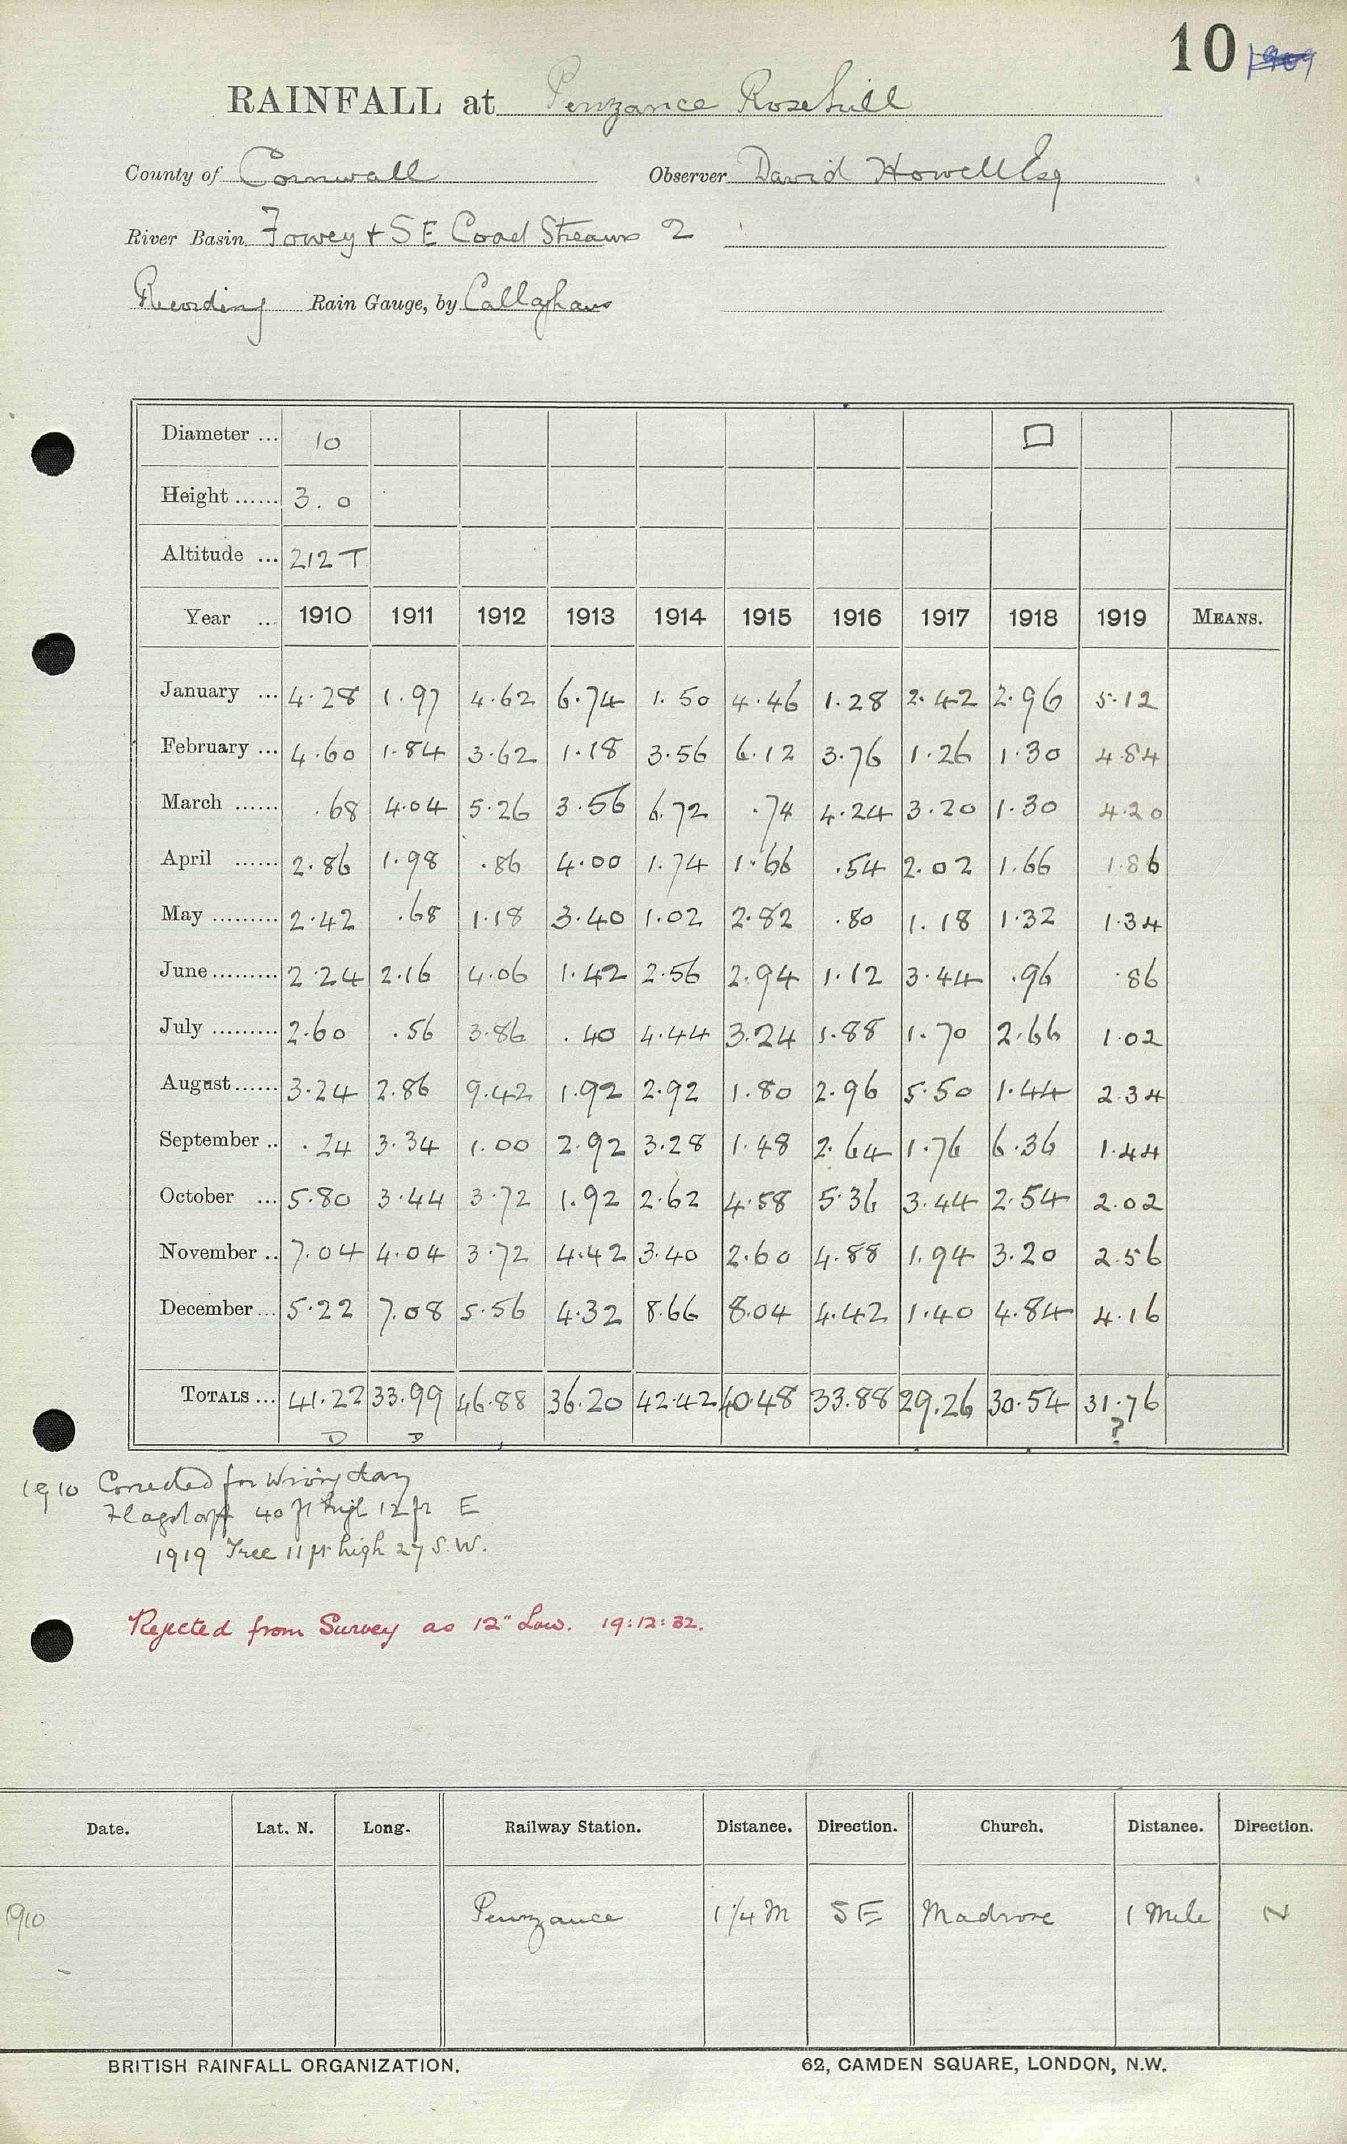 10 1909
RAINFALL at Penzance Rosehill
County of Cornwall Observer David Howell Esq
River Basin Fowey + SE Coast Streams 2
Recording Rain Gauge, by Callaghans
Diameter ... 10
Height ...... 3.0
Altitude ... 212 T
Year ... 1910 1911 1912 1913 1914 1915 1916 1917 1918 1919 MEANS.
January ... 4.28 1.97 4.62 6.74 1.50 4.46 1.28 2.42 2.96 5.12
February ... 4.60 1.84 3.62 1.18 3.56 6.12 3.76 1.26 1.30 4.84
March ...... .68 4.04 5.26 3.56 6.72 .74 4.24 3.20 1.30 4.20
April ...... 2.86 1.98 .86 4.00 1.74 1.66 .54 2.02 1.66 1.86
May ......... 2.42 .68 1.18 3.40 1.02 2.82 .80 1.18 1.32 1.34
June ......... 2.24 2.16 4.06 1.42 2.56 2.94 1.12 3.44 .96 .86
July ......... 2.60 .56 3.86 .40 4.44 3.24 1.88 1.70 2.66 1.02
August ...... 3.24 2.86 9.42 1.92 2.92 1.80 2.96 5.50 1.44 2.34
September .. .24 3.34 1.00 2.92 3.28 1.48 2.64 1.76 6.36 1.44
October ... 5.80 3.44 3.72 1.92 2.62 4.58 5.36 3.44 2.54 2.02
November .. 7.04 4.04 3.72 4.42 3.40 2.60 4.88 1.94 3.20 2.56
December ... 5.22 7.08 5.56 4.32 8.66 8.04 4.42 1.40 4.84 4.16
TOTALS ... 41.22 33.99 46.88 36.20 42.42 40.48 33.88 29.26 30.54 31.76
D D ?
1910 Corrected for wrong day
Flagstaff 40 ft high 12 ft E
1919 Tree 11 ft high 27 S.W.
Rejected from Survey as 12" Low. 19:12:32.
Date. Lat. N. Long. Railway Station. Distance. Direction. Church. Distance. Direction.
1910 Penzance 1 1/4 M SE Madrone 1 Mile N
BRITISH RAINFALL ORGANIZATION. 62, CAMDEN SQUARE, LONDON, N.W.